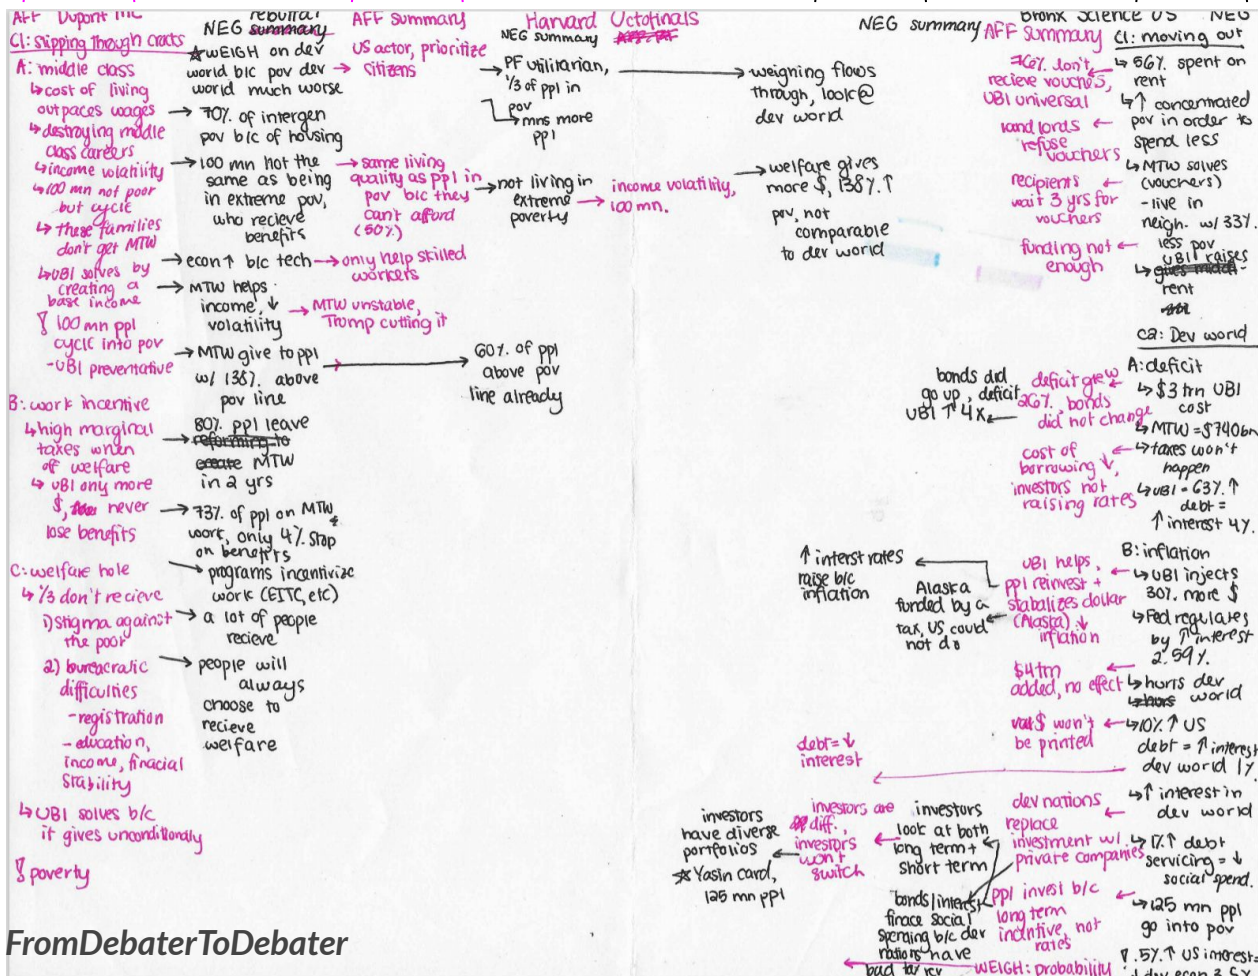 AFF Dupont MC
C1: slipping through cracks
A: middle class
↳cost of living
outpaces wages
↳destroying middle
class careers
↳income volatility
↳100 mn not poor
but cycle
↳ these families
don't get MTW
↳UBI solves by
creating a
base income
100 mn ppl
cycle into pov
-UBI preventative
B: work incentive
↳high marginal
taxes when
off welfare
↳ UBI only more
$, never
lose benefits
C: welfare hole
↳ 1/3 don't recieve
1) stigma against
the poor
2) bureacratic
difficulties
- registration
- education,
income, finacial
stability
↳UBI solves b/c
it gives unconditionally
poverty
rebuttal
NEG summary
☆WEIGH on dev
world b/c pov dev
world much worse
→ 70% of intergen
pov b/c of housing
→100 mn not the
same as being
in extreme pov,
who recieve
benefits
→econ↑ b/c tech
→ MTW helps
income, ↓
volatility
→MTW give to ppl
w/ 138% above
pov line
80% ppl leave
reforming to
create MTW
in 2 yrs
→ 73% of ppl on MTW
work, only 4% stop
on benefits
→ programs incentivize
work (EITC, etc)
→ a lot of people
recieve
→ people will
always
choose to
recieve
welfare
AFF summary
US actor, prioritize
→ citizens
→ same living
quality as ppl in
pov b/c they
can't afford
(50%)
→only help skilled
workers
→ MTW unstable,
Trump cutting it
Harvard Octofinals
NEG summary
→PF utilitarian,
1/3 of ppl in
pov
→mns more
ppl
→not living in
extreme
poverty
60% of ppl
above pov
line already
→ income volatility,
100 mn.
NEG summary
→weighing flows
through, look@
dev world
→welfare gives
more $, 138%↑
pov, not
comparable
to dev world
bonds did
go up, deficit
UBI ↑ 4x
↑ interst rates
raise b/c
inflation
Alaska
funded by a
tax, US could
not do
debt=↓
interest
investors
look at both
long term+
short term
bonds/interest
finace social
spending b/c dev
nations have
bad tax rev
investors are
diff.,
investors
won't
switch
investors
have diverse
portfolios
☆ Yasin card,
125 mn ppl
AFF summary
76% don't
recieve vouches,
UBI universal
landlords
refuse
vouchers
recipients
wait 3 yrs for
vouchers
funding not
enough
deficit grew
26%, bonds
did not change
cost of
borrowing ↓,
investors not
raising rates
UBI helps,
ppl reinvest +
stabalizes dollar
(Alaska) ↓
inflation
$4 trn
added, no effect
$ won't
be printed
dev nations
replace
investment w/
private companies
ppl invest b/c
long term
incentive, not
rates
WEIGH: probability
Bronx Science US NEG
C1: moving out
↳ 56% spent on
rent
↳↑ concentrated
pov in order to
spend less
↳MTW solves
(vouchers)
-live in
neigh. w/ 33%
less pov
UBI raises
rent
C2: Dev world
A: deficit
↳$3 trn UBI
cost
↳MTW=$740bn
↳taxes won't
happen
↳UBI = 63%↑
debt =
↑ interest 4%.
B: inflation
↳UBI injects
30% more $
↳Fed regulates
by ↑ interest
2.59%.
↳hurts dev
world
↳10%↑ US
debt = ↑ interest
dev world 1%
↳↑ interest in
dev world
↳ 1%↑ debt
servicing = ↓
social spend.
↳125 mn ppl
go into pov
.5%↑ US interest
FromDebaterToDebater